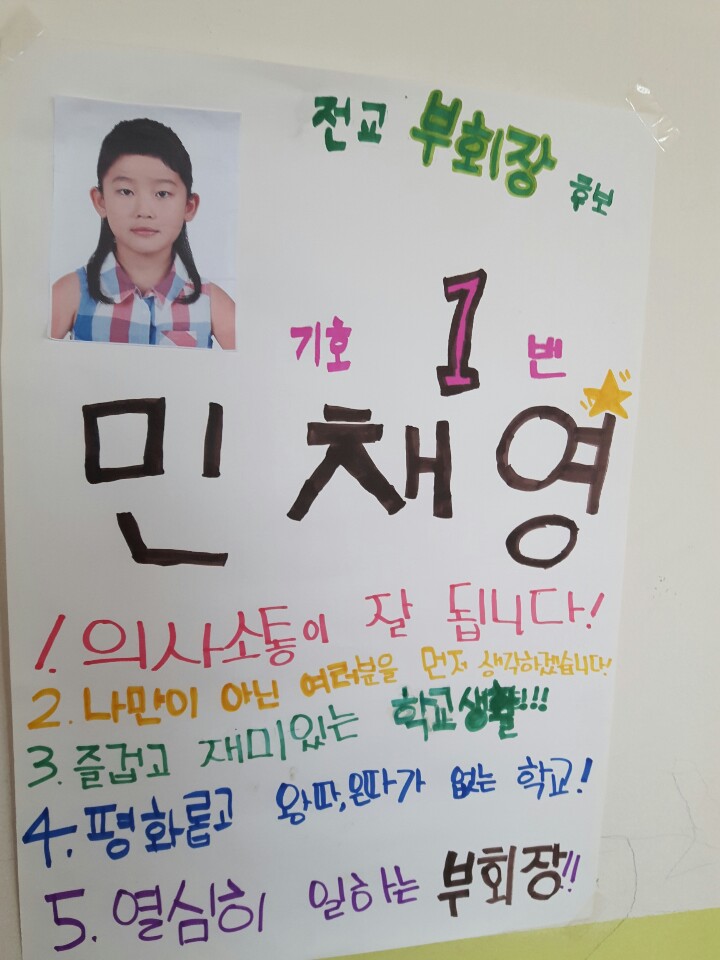 전교 부회장 후보
기호 1 번
민채영
1. 의사소통이 잘 됩니다!
2. 나만이 아닌 여러분을 먼저 생각하겠습니다!
3. 즐겁고 재미있는 학교생활!!!
4. 평화롭고 왕따, 은따가 없는 학교!
5. 열심히 일하는 부회장!!